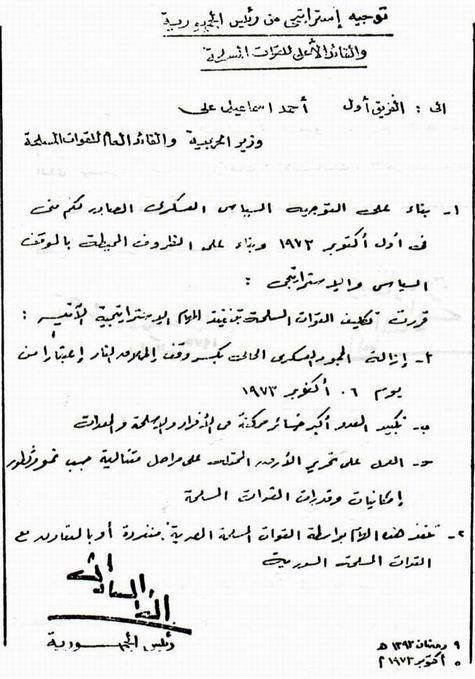 توجيه إستراتيجى من رئيس الجمهورية
والقائد الأعلى للقوات المسلحة
الى : الفريق أول أحمد اسماعيل على
وزير الحربية والقائد العام للقوات المسلحة
١- بناء على التوجيه السياسى العسكرى الصادر لكم منى
فى أول أكتوبر ١٩٧٣ وبناء على الظروف المحيطة بالموقف
السياسى والإستراتيجى :
قررت تكليف القوات المسلحة بتنفيذ المهام الإستراتيجية الآتية :
أ- إزالة الجمود العسكرى الحالى بكسر وقف إطلاق النار إعتباراً من
يوم ٦ أكتوبر ١٩٧٣
ب- تكبيد العدو أكبر خسائر ممكنة فى الأفراد والأسلحة والمعدات
ح- العمل على تحرير الأرض المحتلة على مراحل متتالية حسب نمو وتطور
إمكانيات وقدرات القوات المسلحة
٢- تنفذ هذه المهام بواسطة القوات المسلحة المصرية منفردة أو بالتعاون مع
القوات المسلحة السورية
أنور السادات
رئيس الجمهورية
٩ رمضان ١٣٩٣ ه
٥ أكتوبر ١٩٧٣ م